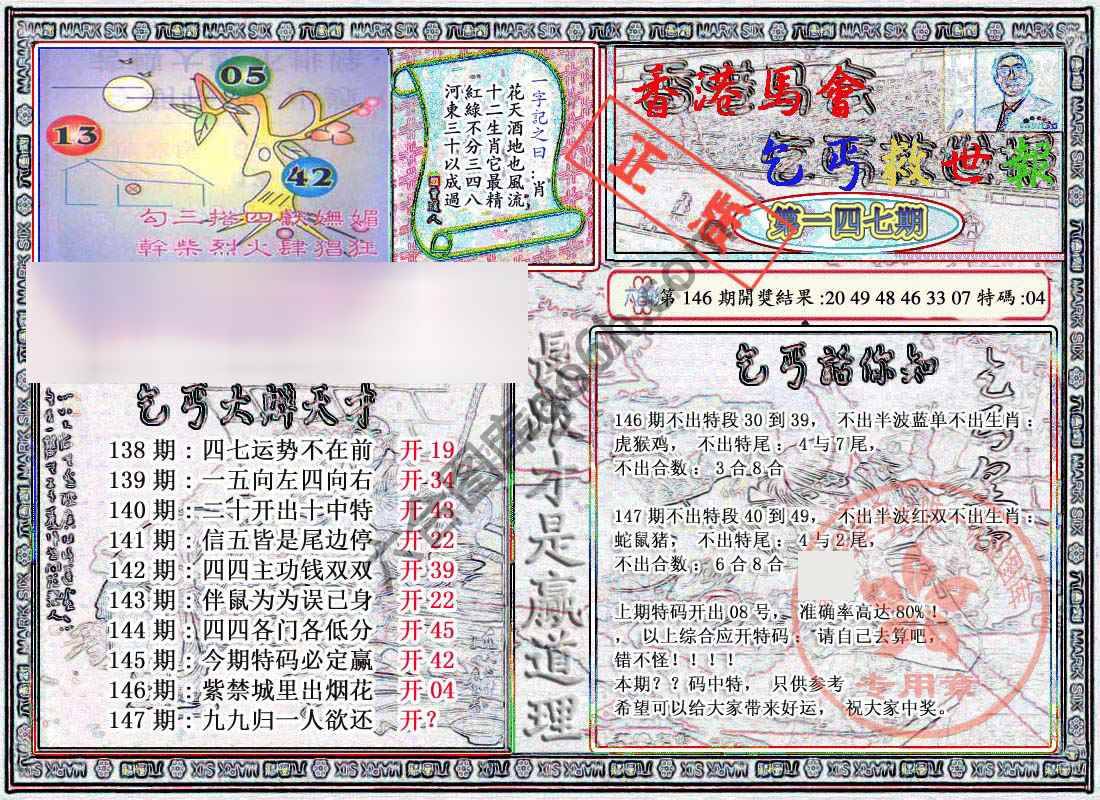 05
13
42
勾三搭四献嫵媚
幹柴烈火肆猖狂
一字記之曰：肖
花天酒地也風流
十二生肖它最精
紅綠不分三四八
河東三十以成過
香港馬會
乞丐救世报
第一四七期
正
第 146 期開獎結果 :20 49 48 46 33 07 特碼 :04
乞丐大辩天才
138 期 : 四七运势不在前 开 19
139 期 : 一五向左四向右 开 34
140 期 : 三十开出十中特 开 43
141 期 : 信五皆是尾边停 开 22
142 期 : 四四主功钱双双 开 39
143 期 : 伴鼠为为误已身 开 22
144 期 : 四四各门各低分 开 45
145 期 : 今期特码必定赢 开 42
146 期 : 紫禁城里出烟花 开 04
147 期 : 九九归一人欲还 开 ?
才是赢道理
乞丐話你知
146 期不出特段 30 到 39， 不出半波蓝单不出生肖：
虎猴鸡， 不出特尾： 4 与 7 尾，
不出合数： 3 合 8 合
147 期不出特段 40 到 49， 不出半波红双不出生肖：
蛇鼠猪， 不出特尾： 4 与 2 尾，
不出合数： 6 合 8 合
上期特码开出 08 号， 准确率高达 80%！
， 以上综合应开特码： 请自己去算吧，
错不怪！！！！
本期？？码中特， 只供参考
希望可以给大家带来好运， 祝大家中奖。
专用章